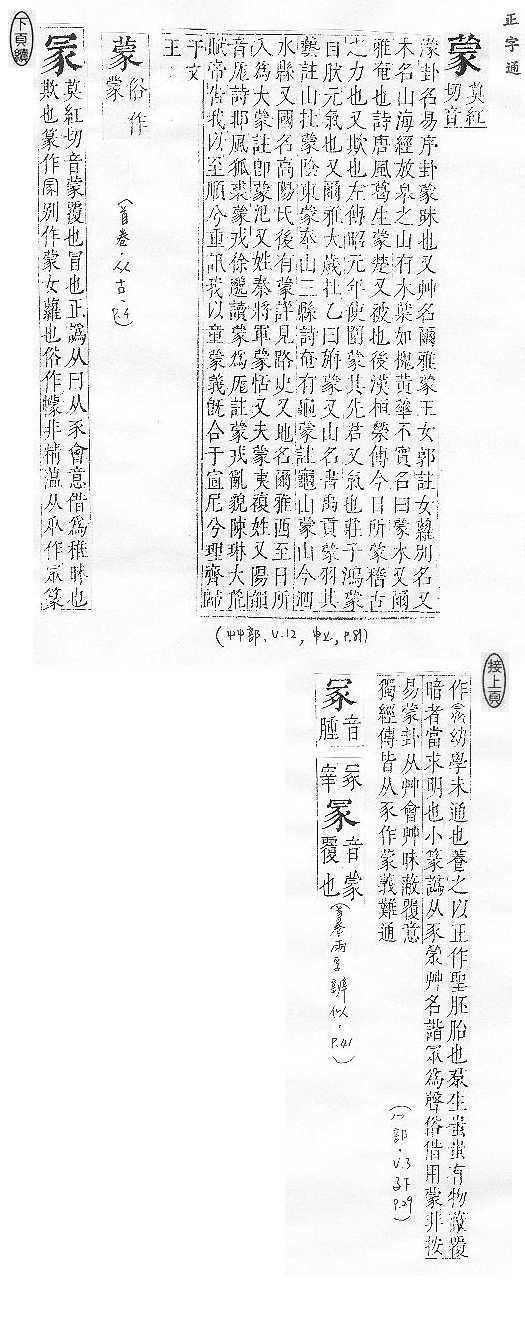 正字通
蒙 莫紅切音
濛卦名易序卦蒙昧也又艸名爾雅蒙王女郭註女蘿別名又
木名山海經放皋之山有木葉如槐黃華不實名曰蒙木又爾
雅奄也詩唐風葛生蒙楚又被也後漢桓榮傳今日所蒙稽古
之力也又欺也左傳昭元年使圍蒙其先君又氣也莊子鴻蒙
自狀元氣也又爾雅大歲在乙曰旃蒙又山名書禹貢蒙羽其
藝註山在蒙陰東蒙奉山三縣詩奄有龜蒙註龜山蒙山今泗
水縣又國名高陽氏後有蒙詳見路史又地名爾雅西至日所
入為大蒙註卽蒙汜又姓秦將軍蒙恬又夫蒙東複姓又陽韻
音厖詩邶風狐裘蒙戎徐邈讀蒙為厖註蒙戎亂貌陳琳大荒
賦帝告我以至順兮重訊我以童蒙義旣合于宣尼兮理齊歸
于文
王
(艸部、V.12, 申上, P.81)
蒙 俗作蒙
(首卷·从古·P.4)
冡 莫紅切音蒙覆也冒也正譌从冃从豕會意借為稚昧也
欺也篆作冡別作蒙女蘿也俗作幪非精薀从㐺作眾篆
下頁續
接上頁
幼學未通也養之以正作聖胚胎也羣生蚩蚩有物蔽覆
暗者當求明也小篆譌从豕蒙艸名諧眾為聲俗借用蒙非按
易蒙卦从艸會艸昧蔽覆意
獨經傳皆从豕作蒙義難通
(冖部·V.3 子下 P.29)
冡 音腫 冢宰
冡 音蒙覆也
(首卷兩字辨似·P.41)